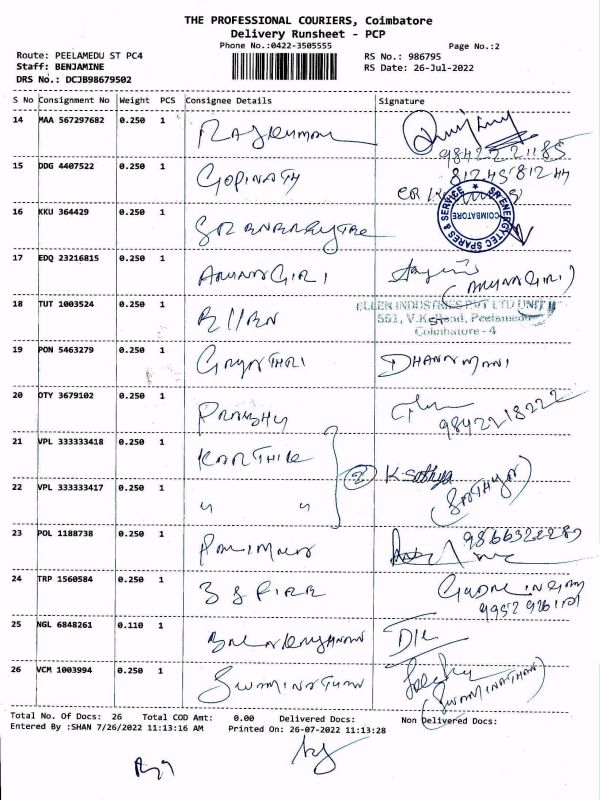 THE PROFESSIONAL COURIERS, Coimbatore
Delivery Runsheet - PCP
Phone No.:0422-3505555
Page No.:2
Route: PEELAMEDU ST PC4
RS No.: 986795
Staff: BENJAMINE
RS Date: 26-Jul-2022
DRS No.: DCJB98679502
S No Consignment No Weight PCS Consignee Details Signature
14 MAA 567297682 0.250 1 RAJKUMAR
9842221185
15 DDG 4407522 0.250 1 GOPINATH
8124581244
16 KKU 364429 0.250 1
SR ENERGYTEC SPARES & SERVICE
COIMBATORE
17 EDQ 23216815 0.250 1 ARUNAGIRI (ARUNAGIRI)
18 TUT 1003524 0.250 1 ELLEN
ELLEN INDUSTRIES PVT LTD UNIT II
551, V.K. Road, Peelamedu
Coimbatore - 4
19 PON 5463279 0.250 1 GAYATHRI DHANAMANI
20 OTY 3679102 0.250 1 PRABHU
9842218222
21 VPL 333333418 0.250 1 KARTHIK
2 K Sathya
22 VPL 333333417 0.250 1 " " (SATHYA)
23 POL 1188738 0.250 1
24 TRP 1560584 0.250 1
25 NGL 6848261 0.110 1 BALAKRISHNAN
26 VCM 1003994 0.250 1 SWAMINATHAN
(SWAMINATHAN)
Total No. Of Docs: 26 Total COD Amt: 0.00 Delivered Docs: Non Delivered Docs:
Entered By :SHAN 7/26/2022 11:13:16 AM Printed On: 26-07-2022 11:13:28